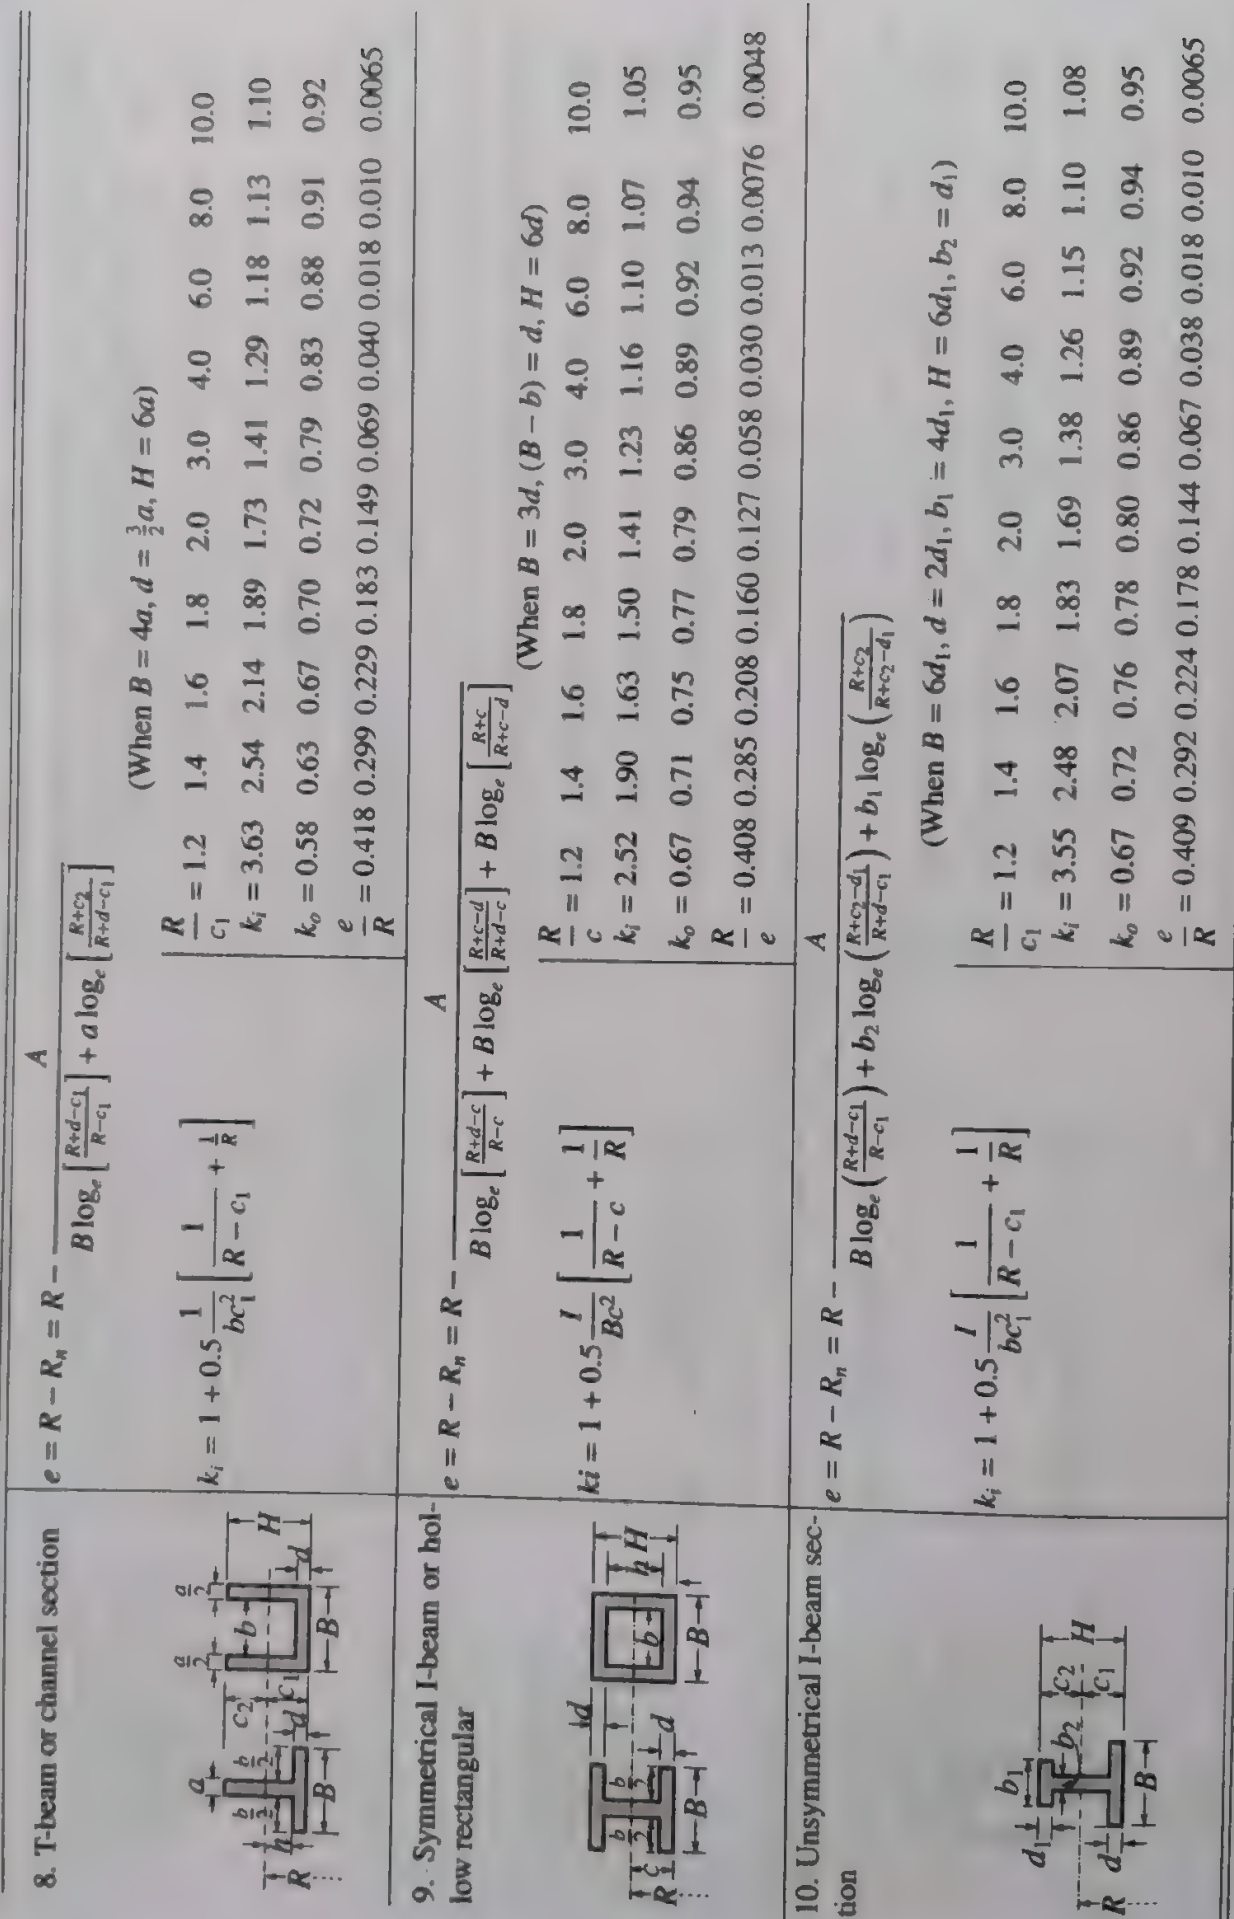 8. T-beam or channel section
a
b/2 b/2
h
R
B
d
c₂
c₁
a/2 a/2
b
B
d
H
e = R − Rₙ = R − A / (B logₑ [(R+d−c₁)/(R−c₁)] + a logₑ [(R+c₂)/(R+d−c₁)])
kᵢ = 1 + 0.5 1/(bc₁²) [1/(R − c₁) + 1/R]
(When B = 4a, d = 3/2 a, H = 6a)
R/c₁ = 1.2 1.4 1.6 1.8 2.0 3.0 4.0 6.0 8.0 10.0
kᵢ = 3.63 2.54 2.14 1.89 1.73 1.41 1.29 1.18 1.13 1.10
kₒ = 0.58 0.63 0.67 0.70 0.72 0.79 0.83 0.88 0.91 0.92
e/R = 0.418 0.299 0.229 0.183 0.149 0.069 0.040 0.018 0.010 0.0065
9. Symmetrical I-beam or hol-
low rectangular
R
c
b/2 b/2
B
d
d
b
B
h
H
e = R − Rₙ = R − A / (B logₑ [(R+d−c)/(R−c)] + B logₑ [(R+c−d)/(R+d−c)] + B logₑ [(R+c)/(R+c−d)])
ki = 1 + 0.5 I/(Bc²) [1/(R − c) + 1/R]
(When B = 3d, (B − b) = d, H = 6d)
R/c = 1.2 1.4 1.6 1.8 2.0 3.0 4.0 6.0 8.0 10.0
kᵢ = 2.52 1.90 1.63 1.50 1.41 1.23 1.16 1.10 1.07 1.05
kₒ = 0.67 0.71 0.75 0.77 0.79 0.86 0.89 0.92 0.94 0.95
R/e = 0.408 0.285 0.208 0.160 0.127 0.058 0.030 0.013 0.0076 0.0048
10. Unsymmetrical I-beam sec-
tion
d₁
b₁
b₂
c₂
c₁
H
d
R
B
e = R − Rₙ = R − A / (B logₑ ((R+d−c₁)/(R−c₁)) + b₂ logₑ ((R+c₂−d₁)/(R+d−c₁)) + b₁ logₑ ((R+c₂)/(R+c₂−d₁)))
kᵢ = 1 + 0.5 I/(bc₁²) [1/(R − c₁) + 1/R]
(When B = 6d₁, d = 2d₁, b₁ = 4d₁, H = 6d₁, b₂ = d₁)
R/c₁ = 1.2 1.4 1.6 1.8 2.0 3.0 4.0 6.0 8.0 10.0
kᵢ = 3.55 2.48 2.07 1.83 1.69 1.38 1.26 1.15 1.10 1.08
kₒ = 0.67 0.72 0.76 0.78 0.80 0.86 0.89 0.92 0.94 0.95
e/R = 0.409 0.292 0.224 0.178 0.144 0.067 0.038 0.018 0.010 0.0065